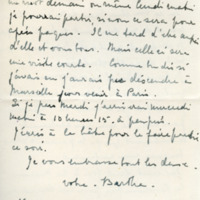 demain ou même lundi
je pourrai partir, si non ce sera pour
après pâques. Il me tarde d'être auprès
d'elle et vous tous. Mais celle ci sera
une visite courte. Comme tu dis si
j'avais su j'aurais pas descendre à
Marseille pour venir à Paris.
Si je peu mardi j'arriverai mercredi
matin à 10 heures 15.
J'écris à la hâte pour le faire partir
ce soir.
Je vous embrasse tout les deux.
votre Marthe